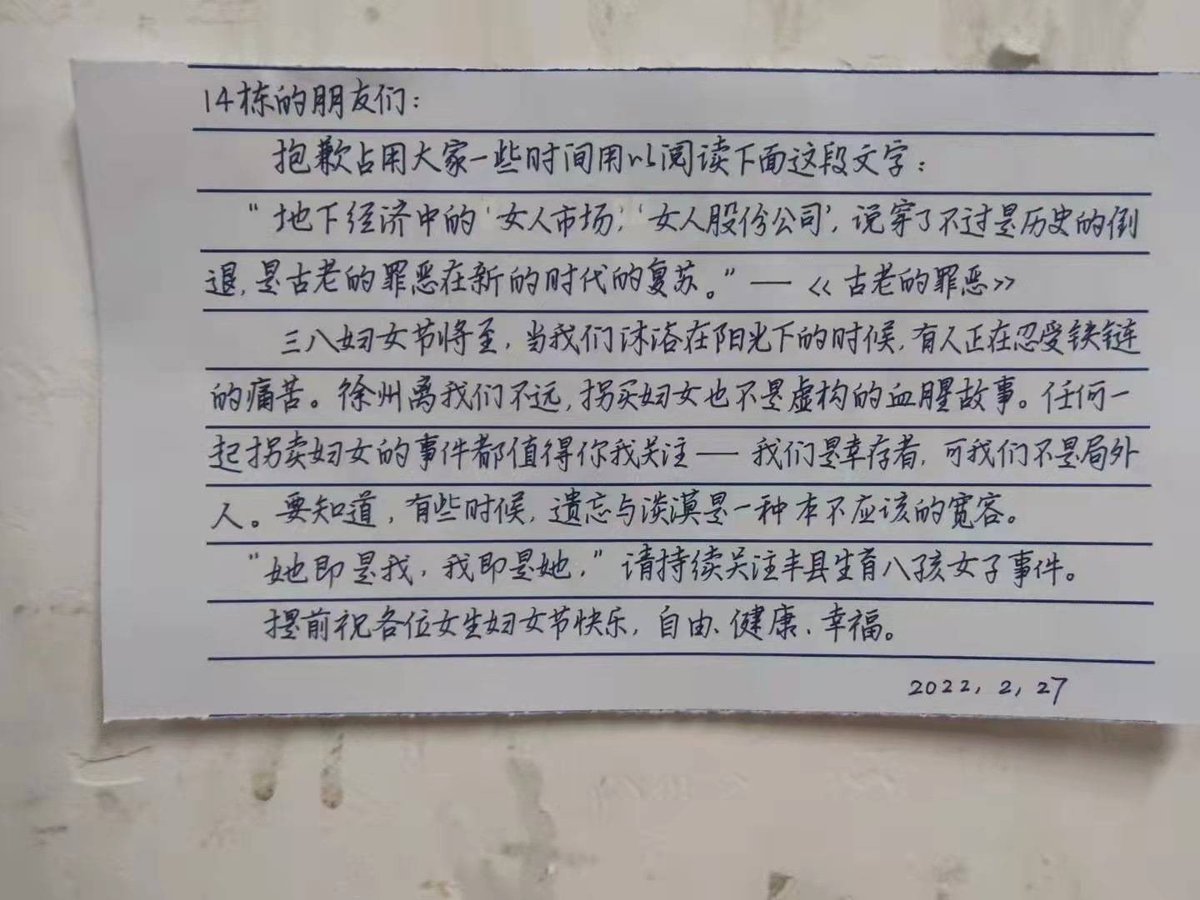 14栋的朋友们：
抱歉占用大家一些时间用以阅读下面这段文字：
“地下经济中的‘女人市场’，‘女人股份公司’，说穿了不过是历史的倒
退，是古老的罪恶在新的时代的复苏。”——《古老的罪恶》
三八妇女节将至，当我们沐浴在阳光下的时候，有人正在忍受铁链
的痛苦。徐州离我们不远，拐买妇女也不是虚构的血腥故事。任何一
起拐卖妇女的事件都值得你我关注——我们是幸存者，可我们不是局外
人。要知道，有些时候，遗忘与淡漠是一种本不应该的宽容。
“她即是我，我即是她，”请持续关注丰县生育八孩女子事件。
提前祝各位女生妇女节快乐，自由、健康、幸福。
2022，2，27